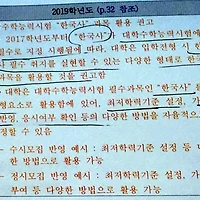 2019학년도 (p.32 참조)
수학능력시험 "한국사" 과목 활용 권고
2017학년도부터 "한국사"가 대학수학능력시험에
필수로 지정 시행됨에 따라, 대학은 입학전형
사 필수 취지를 실현할 수 있는 다양한 형태로 한국
과목을 활용할 것을 권고함
대학은 대학수학능력시험 필수과목인 "한국사"를
형요소로 활용함에 있어, 최저학력기준 설정, 가
반영, 응시여부 확인 등의 다양한 방법을 자율적으
정할 수 있음
- 수시모집 반영 예시 : 최저학력기준 설정 등 다
한 방법으로 활용 가능
- 정시모집 반영 예시 : 최저학력기준 설정, 가
부여 등 다양한 방법으로 활용 가능